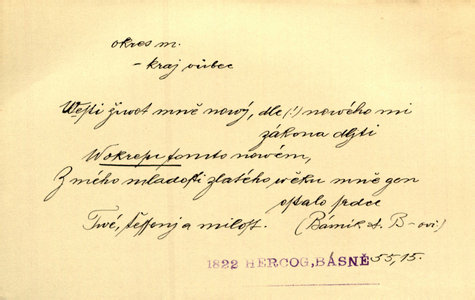 okres m.
- kraj vůbec
Westi život mně nový, dle (!) nowého mi
zákona dgti
W okresu tomto nowém,
Z mého mladosti zlatého wěku mně gen
ostalo srdce
Twé, těssenj a milost. (Básnik A. B-owi)
1822 HERCOG, BÁSNĚ 55, 15.